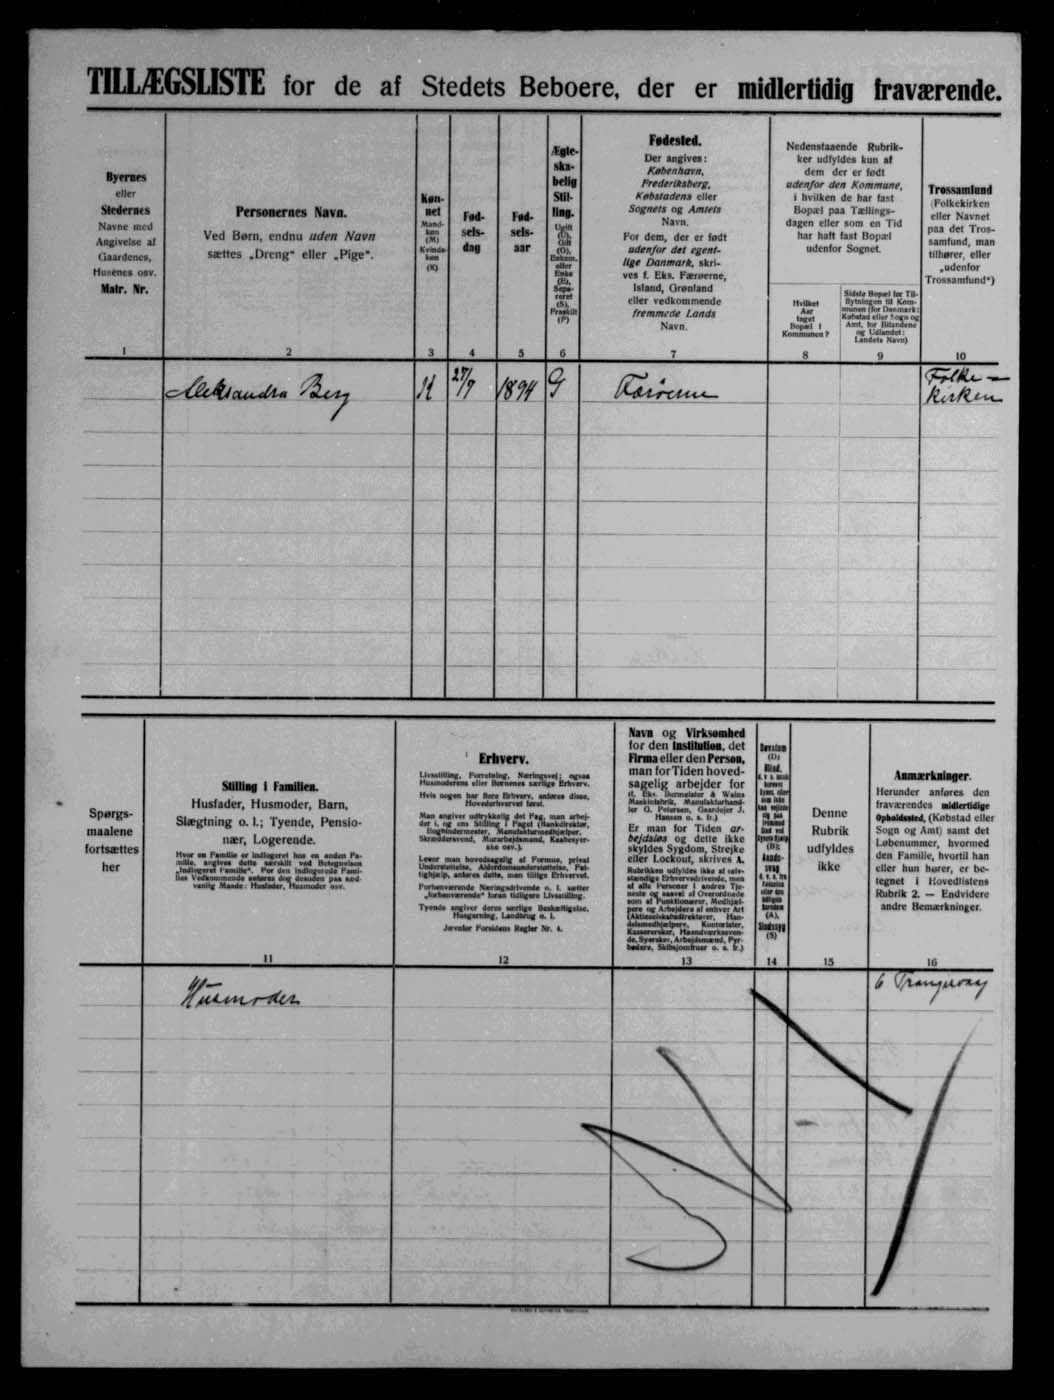 TILLÆGSLISTE for de af Stedets Beboere, der er midlertidig fraværende.
Byernes
eller
Stedernes
Navne med
Angivelse af
Gaardenes,
Husenes osv.
Matr. Nr.
1
Personernes Navn.
Ved Børn, endnu uden Navn
sættes „Dreng“ eller „Pige“.
2
Køn-
net
Mand-
køn
(M)
Kvinde-
køn
(K)
3
Fød-
sels-
dag
4
Fød-
sels-
aar
5
Ægte-
ska-
belig
Stil-
ling.
Ugift
(U),
Gift
(G),
Enkem.
eller
Enke
(E),
Sepa-
reret
(S),
Fraskilt
(F)
6
Fødested.
Der angives:
København,
Frederiksberg,
Købstadens eller
Sognets og Amtets
Navn.
For dem, der er født
udenfor det egent-
lige Danmark, skri-
ves f. Eks. Færøerne,
Island, Grønland
eller vedkommende
fremmede Lands
Navn.
7
Nedenstaaende Rubrik-
ker udfyldes kun af
dem der er født
udenfor den Kommune,
i hvilken de har fast
Bopæl paa Tællings-
dagen eller som en Tid
har haft fast Bopæl
udenfor Sognet.
Hvilket
Aar
taget
Bopæl i
Kommunen?
8
Sidste Bopæl før Til-
flytningen til Kom-
munen (for Danmark:
Købstad eller Sogn og
Amt, for Bilandene
og Udlandet:
Landets Navn)
9
Trossamfund
(Folkekirken
eller Navnet
paa det Tros-
samfund, man
tilhører, eller
„udenfor
Trossamfund“)
10
Aleksandra Berg K 27/7 1894 G Færøerne Folke-
kirken
Spørgs-
maalene
fortsættes
her
Stilling i Familien.
Husfader, Husmoder, Barn,
Slægtning o. l.; Tyende, Pensio-
nær, Logerende.
Hvor en Familie er indlogeret hos en anden Fa-
milie, angives dette særskilt ved Betegnelsen
„Indlogeret Familie“. For den indlogerede Fami-
lies Vedkommende anføres dog desuden paa sæd-
vanlig Maade: Husfader, Husmoder osv.
11
Erhverv.
Livsstilling, Forretning, Næringsvej; ogsaa
Husmoderens eller Børnenes særlige Erhverv.
Hvis nogen har flere Erhverv, anføres disse,
Hovederhvervet først.
Man angiver udtrykkelig det Fag, man arbej-
der i, og ens Stilling i Faget (Bankdirektør,
Bogbindermester, Manufakturmedhjælper,
Skræddersvend, Murarbejdsmand, Kaabesyer-
ske osv.).
Lever man hovedsagelig af Formue, privat
Understøttelse, Alderdomsunderstøttelse, Fat-
tighjælp, anføres dette, men tillige Erhvervet.
Forhenværende Næringsdrivende o. l. sætter
„forhenværende“ foran tidligere Livsstilling.
Tyende angiver deres særlige Beskæftigelse,
Husgerning, Landbrug o. l.
Jævnfør Forsidens Regler Nr. 4.
12
Navn og Virksomhed
for den Institution, det
Firma eller den Person,
man for Tiden hoved-
sagelig arbejder for
(f. Eks. Burmeister & Wains
Maskinfabrik, Manufakturhand-
ler O. Petersen, Gaardejer J.
Hansen o. s. fr.)
Er man for Tiden ar-
bejdsløs og dette ikke
skyldes Sygdom, Strejke
eller Lockout, skrives A.
Rubrikken udfyldes ikke af selv-
stændige Erhvervsdrivende, men
af alle Personer i andres Tje-
neste og saavel af Overordnede
som af Funktionærer, Medhjæl-
pere og Arbejdere af enhver Art
(Aktieselskabsdirektører, Han-
delsmedhjælpere, Kontorister,
Kassererske, Haandværkssven-
de, Syersker, Arbejdsmænd, Pyr-
bødere, Skibsjomfruer o. s. fr.)
13
Døvstum
(D)
Blind,
(B);
Aands-
svag
(A),
Sindssyg
(S)
14
Denne
Rubrik
udfyldes
ikke
15
Anmærkninger.
Herunder anføres den
fraværendes midlertidige
Opholdssted, (Købstad eller
Sogn og Amt) samt det
Løbenummer, hvormed
den Familie, hvortil han
eller hun hører, er be-
tegnet i Hovedlistens
Rubrik 2. — Endvidere
andre Bemærkninger.
16
Husmoder
6 Trangisvaag